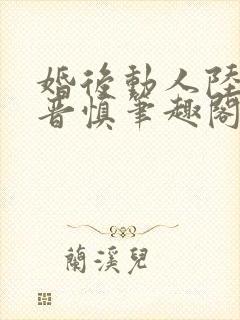 婚後動人陸
晋慎筆趣閣
蘭溪兒